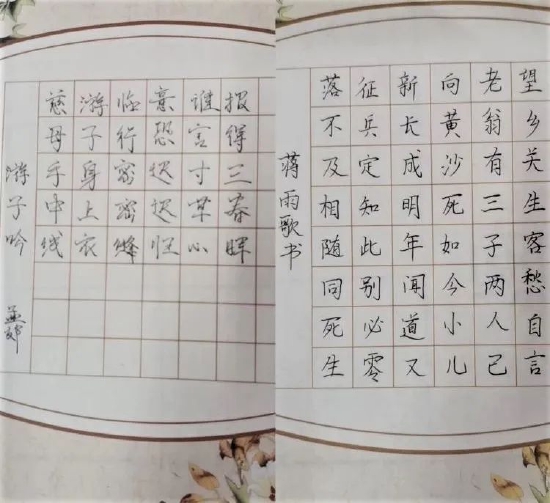 游子吟
孟郊
慈母手中线
游子身上衣
临行密密缝
意恐迟迟归
谁言寸草心
报得三春晖
望乡关生客愁自言
老翁有三子两人已
向黄沙死如今小儿
新长成明年闻道又
征兵定知此别必零
落不及相随同死生
蒋雨歌书